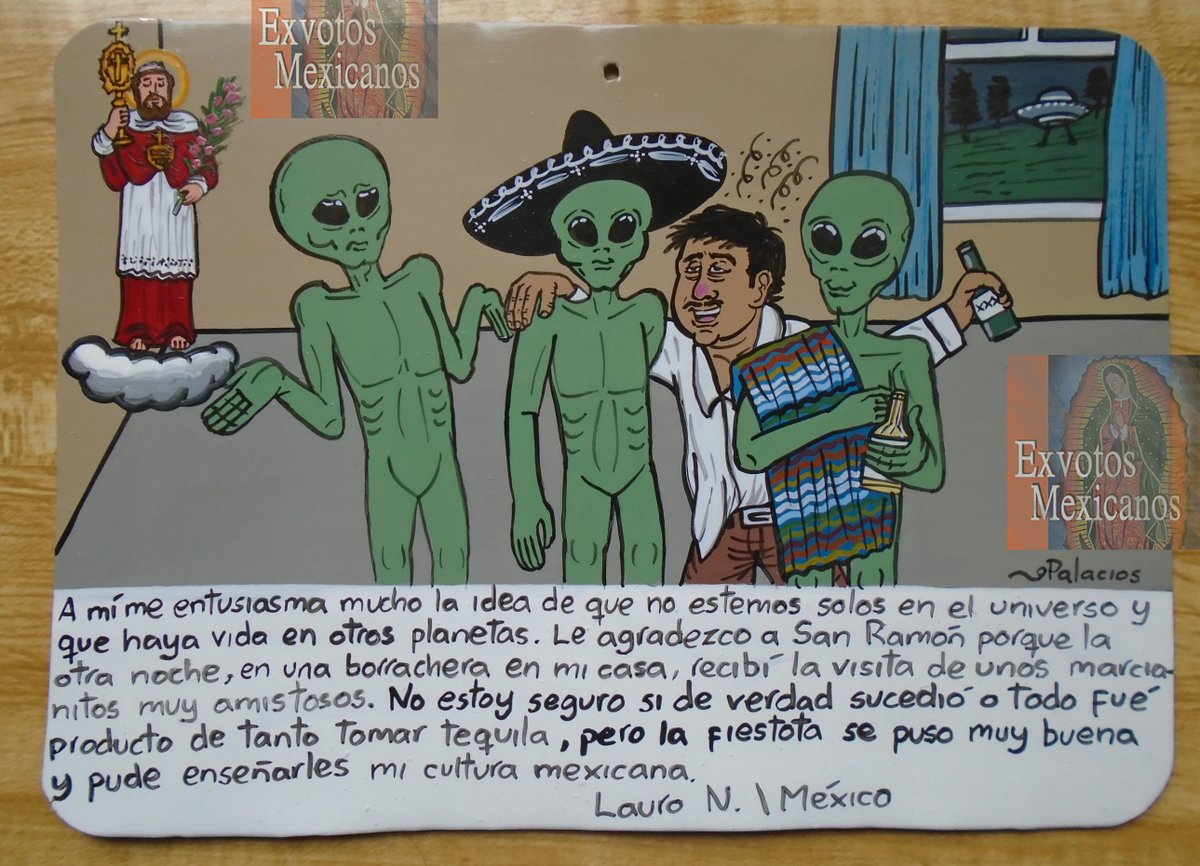 Exvotos
Mexicanos
XXX
Exvotos
Mexicanos
Palacios
A mí me entusiasma mucho la idea de que no estemos solos en el universo y
que haya vida en otros planetas. Le agradezco a San Ramón porque la
otra noche, en una borrachera en mi casa, recibí la visita de unos marcia-
nitos muy amistosos. No estoy seguro si de verdad sucedió o todo fué
producto de tanto tomar tequila, pero la fiestota se puso muy buena
y pude enseñarles mi cultura mexicana.
Lauro N. \ México